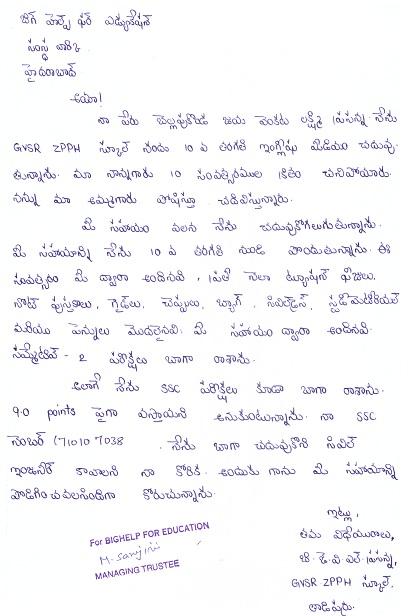 బిగ్ హెల్ప్ ఫర్ ఎడ్యుకేషన్
సంస్థ వారికి
హైదరాబాద్
అయ్యా!
నా పేరు బెల్లపుకొండ జయ వెంకట లక్ష్మి ప్రసన్న నేను
GVSR ZPPH స్కూల్ నందు 10 వ తరగతి ఇంగ్లీషు మీడియం చదువు
తున్నాను. మా నాన్నగారు 10 సంవత్సరముల క్రితం చనిపోయారు.
నన్ను మా అమ్మగారు పోషిస్తూ చదివిస్తున్నారు.
మీ సహాయం వలన నేను చదువుకోగలుగుతున్నాను.
మీ సహాయాన్ని నేను 10 వ తరగతి నుండి పొందుతున్నాను. ఈ
సంవత్సరం మీ ద్వారా అందినవి, ప్రతి నెలా ట్యూషన్ ఫీజులు,
నోట్ పుస్తకాలు, గైడ్లు, చెప్పులు, బ్యాగ్, సివిల్డ్రెస్, స్టడీమెటీరియల్
మరియు పెన్నులు మొదలైనవి మీ సహాయం ద్వారా అందినవి.
సమ్మేటివ్ - 2 పరీక్షలు బాగా రాశాను.
అలాగే నేను SSC పరీక్షలు కూడా బాగా రాశాను.
9.0 points పైగా వస్తాయని అనుకుంటున్నాను. నా SSC
నెంబర్ 1710107038. నేను బాగా చదువుకొని సివిల్
ఇంజనీర్ కావాలని నా కోరిక. అందుకు గాను మీ సహాయాన్ని
పొడిగించవలసిందిగా కోరుచున్నాను.
ఇట్లు,
తమ విధేయురాలు,
బి. జె. వి. ఎల్. ప్రసన్న,
GVSR ZPPH స్కూల్,
తాడిపర్రు.
For BIGHELP FOR EDUCATION
MANAGING TRUSTEE